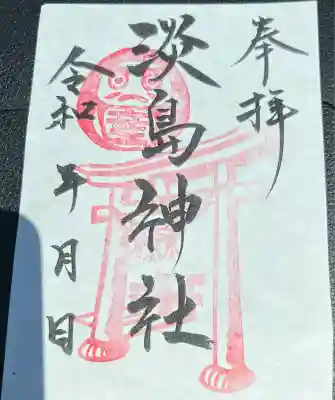 奉拝
淡島神社
令和 年 月 日